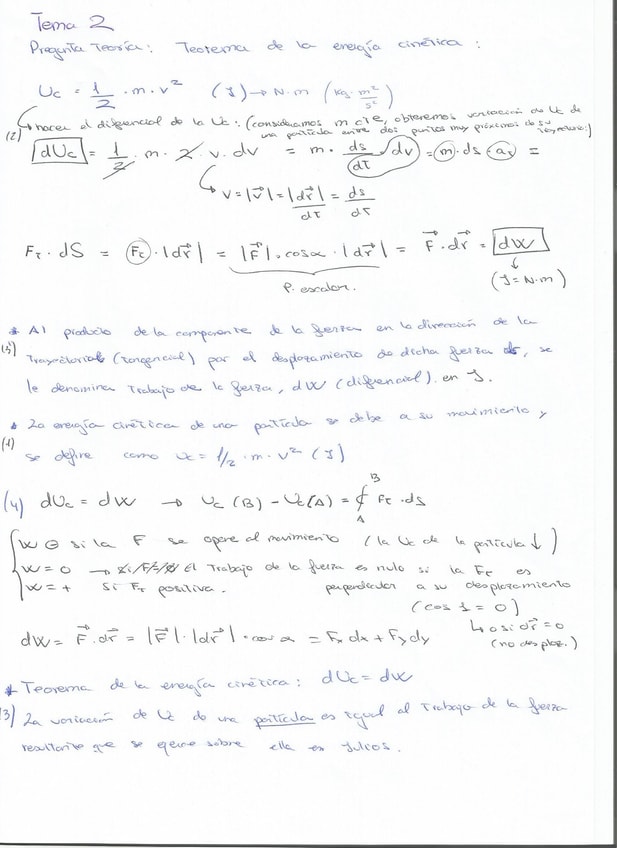 Tema 2
Pregunta Teoría: Teorema de la energía cinética:
Uc = 1/2 · m · v² (J) → N·m (kg · m²/s²)
(2) hacer el diferencial de la Uc: (consideramos m cte, obtenemos variación de Uc de
una partícula entre dos puntos muy próximos de su trayectoria)
dUc = 1/2 · m · 2 · v · dv = m · ds/dt · dv = m · ds · aτ =
v = |v⃗| = |dr⃗|/dt = ds/dt
Fτ · dS = Fτ · |dr⃗| = |F⃗| · cosα · |dr⃗| = F⃗ · dr⃗ = dW
P. escalar. (J = N·m)
* Al producto de la componente de la fuerza en la dirección de la
trayectoria (tangencial) por el desplazamiento de dicha fuerza, se
le denomina Trabajo de la fuerza, dW (diferencial). en J.
* La energía cinética de una partícula se debe a su movimiento y
(1) se define como Uc = 1/2 · m · v² (J)
(4) dUc = dW → Uc (B) - Uc (A) = ∮ᴬᴮ Fτ · dS
W ⊖ si la F se opone al movimiento (la Uc de la partícula ↓)
W = 0 → El Trabajo de la fuerza es nulo si la Fτ es
perpendicular a su desplazamiento
W = + Si Fτ positiva.
(cos = 0)
↳ o si dr⃗ = 0
(no desplaz.)
dW = F⃗ · dr⃗ = |F⃗| · |dr⃗| · cos α = Fx dx + Fy dy
* Teorema de la energía cinética: dUc = dW
(3) La variación de Uc de una partícula es igual al Trabajo de la fuerza
resultante que se ejerce sobre ella en Julios.